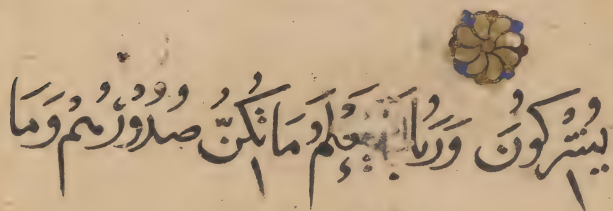 يُشْرِكُونَ وَرَبُّكَ يَعْلَمُ مَا تُكِنُّ صُدُورُهُمْ وَمَا